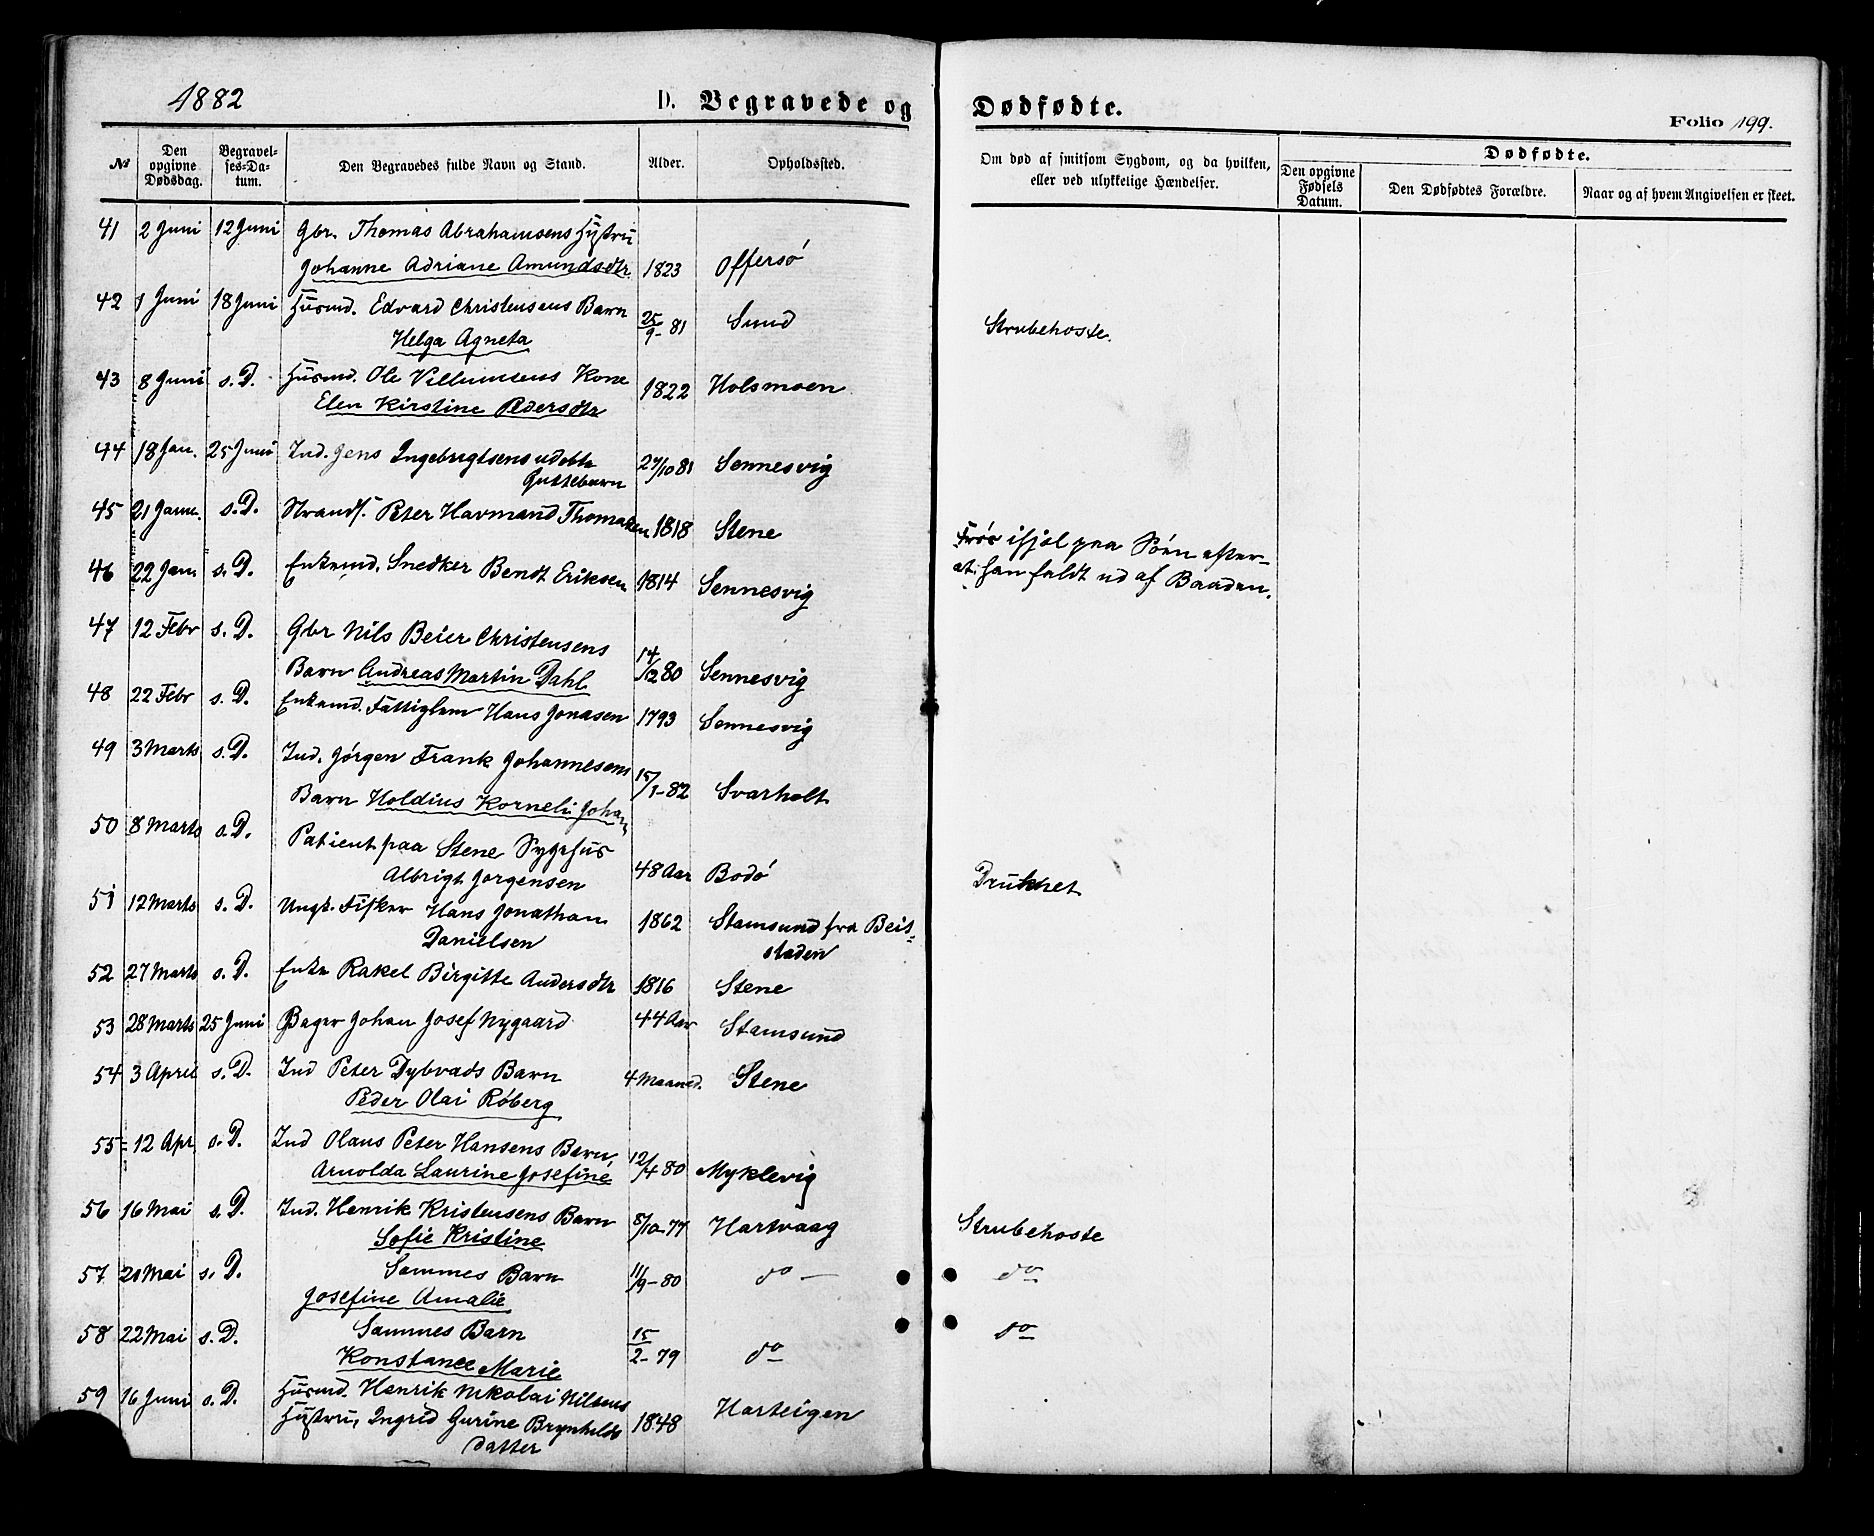 1882
D. Begravede og
Dødfødte.
Folio 199.
№
Den opgivne Dødsdag.
Begravelses-Datum.
Den Begravedes fulde Navn og Stand.
Alder.
Opholdssted.
Om død af smitsom Sygdom, og da hvilken, eller ved ulykkelige Hændelser.
Dødfødte.
Den opgivne Fødsels Datum.
Den Dødfødtes Forældre.
Naar og af hvem Angivelsen er skeet.
41 2 Juni 12 Juni Gbr. Thomas Abrahamsens Hustru
Johanne Adriane Amundsdtr. 1823 Offersö
42 1 Juni 18 Juni Husmd. Edvard Christensens Barn
Helga Agneta 25/9-81 Sund Strubehoste.
43 8 Juni s. D. Husmd. Ole Villumsens Kone
Elen Kirstine Pedersdtr 1822 Holsmoen
44 18 Jan. 25 Juni Ind. Jens Ingebrigtsens udøbte
Guttebarn 27/10 81 Sennesvig
45 21 Janu. s. D. Strands. Peter Havmand Thomassen 1818 Stene
46 22 Jan s. D. Enkemd. Snedker Bendt Eriksen 1814 Sennesvig
Frös ihjel paa Söen efter-
at han faldt ud af Baaden.
47 12 Febr s. D. Gbr Nils Beier Christensens
Barn Andreas Martin Dahl 14/12 80 Sennesvig
48 22 Febr s. D. Enkemd. Fattiglem Hans Jonasen 1793 Sennesvig
49 3 Marts s. D. Ind. Jørgen Frank Johannesens
Barn Holdius Korneli Johan 15/1-82 Svarholt
50 8 Marts s. D. Patient paa Stene Sygehus
Albrigt Jørgensen 48 Aar Bodö Druknet
51 12 Marts s. D. Ungk. Fisker Hans Jonathan
Danielsen 1862 Stamsund fra Beit-
staden
52 27 Marts s. D. Enke Rakel Birgitte Andersdtr 1816 Stene
53 28 Marts 25 Juni Bager Johan Josef Nygaard 44 Aar Stamsund
54 3 April s. D. Ind Peter Dybvads Barn
Peder Olai Röberg 4 Maaned. Stene
55 12 Apr s. D. Ind Olaus Peter Hansens Barn,
Arnolda Laurine Josefine 12/4 80 Myklevig
56 16 Mai s. D. Ind. Henrik Kristensens Barn
Sofie Kristine 8/10-77 Hartvaag Strubehoste
57 20 Mai s. D. Sammes Barn
Josefine Amalie 11/9-80 do do
58 22 Mai s. D. Sammes Barn
Konstance Marie 15/2-79 do do
59 16 Juni s. D. Husmd. Henrik Nikolai Nilsens
Hustru, Ingrid Gurine Brynhilds
datter 1848 Harteigen